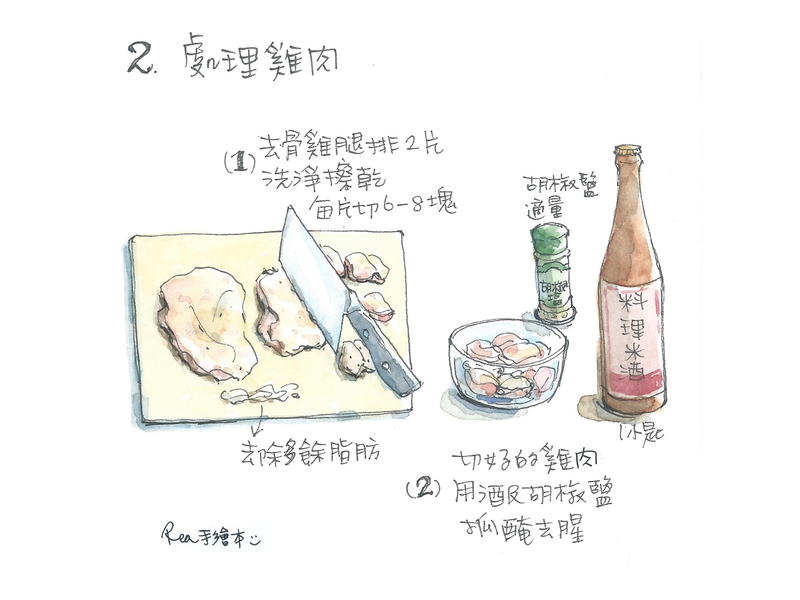 2. 處理雞肉
(1) 去骨雞腿排2片
洗淨擦乾
每片切6-8塊
胡椒鹽
適量
胡椒
鹽
料理米酒
1小匙
去除多餘脂肪
切好的雞肉
(2) 用酒及胡椒鹽
抓醃去腥
Rea手繪本